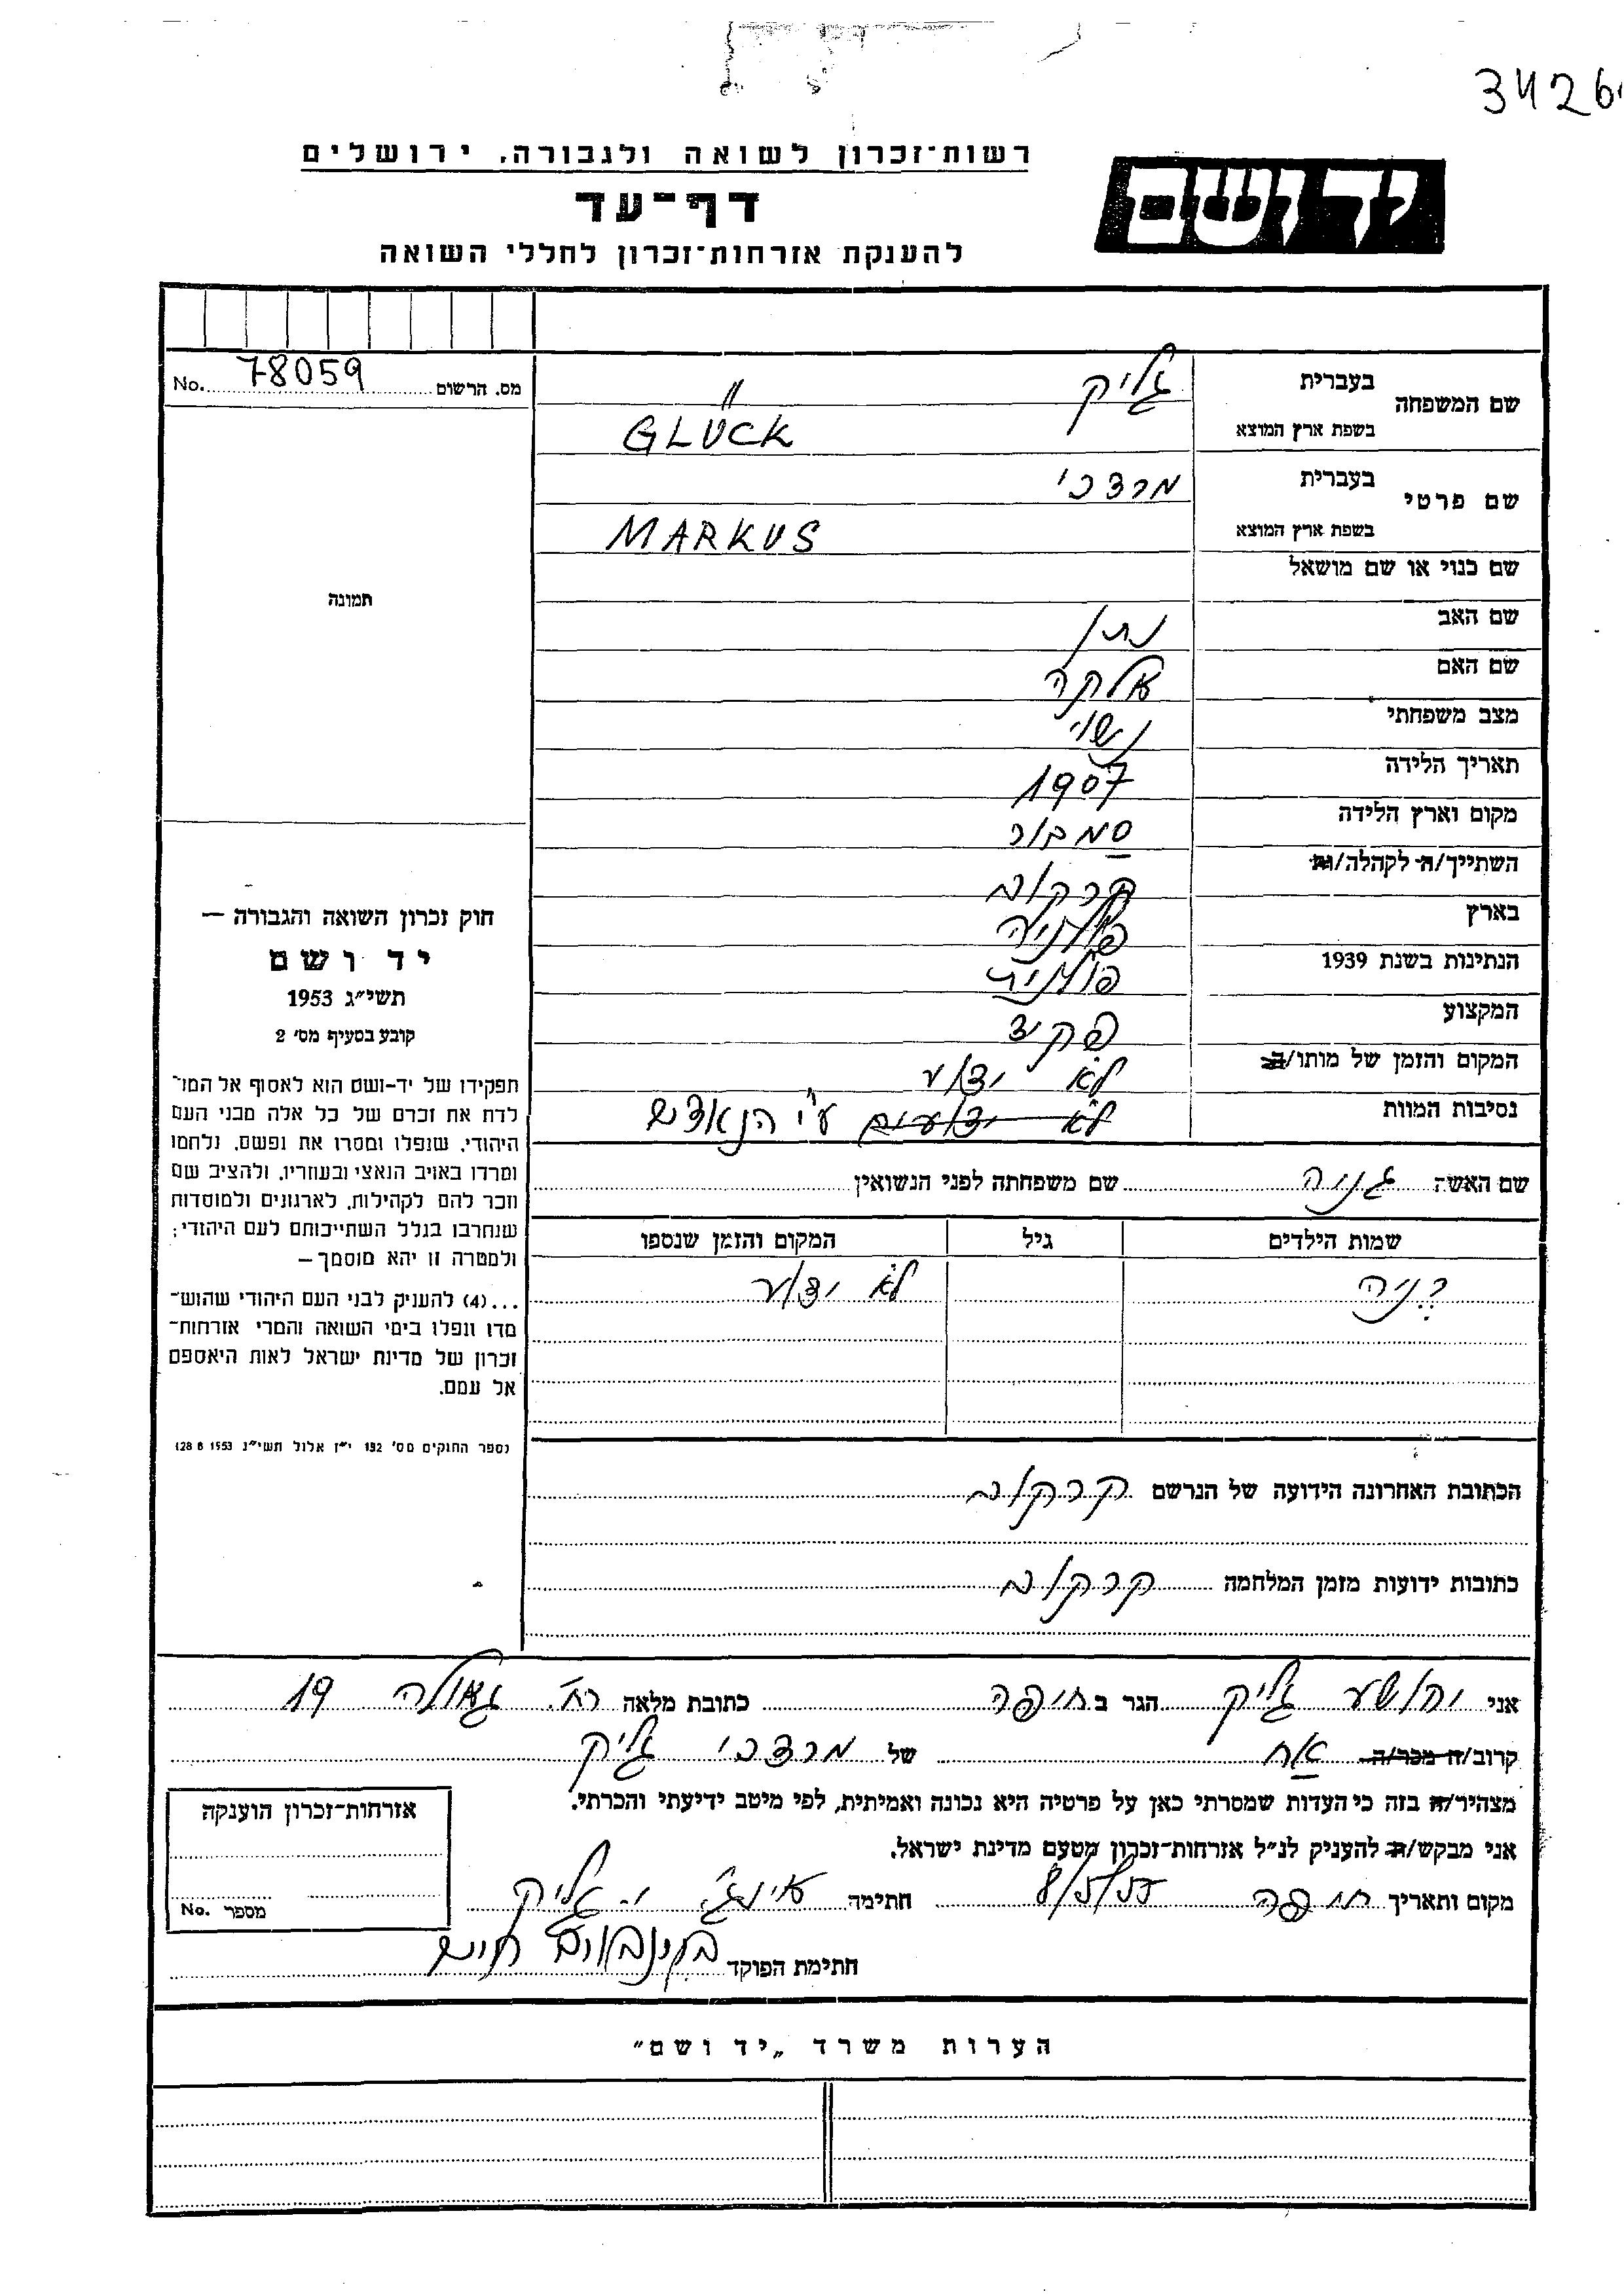 3426
רשות־זכרון לשואה ולגבורה, ירושלים
יד ושם
דף־עד
להענקת אזרחות־זכרון לחללי השואה
מס. הרשום 78059 No.
תמונה
חוק זכרון השואה והגבורה —
יד ושם
תשי״ג 1953
קובע בסעיף מס׳ 2
תפקידו של יד-ושם הוא לאסוף אל המו־
לדת את זכרם של כל אלה מבני העם
היהודי, שנפלו ומסרו את נפשם, נלחמו
ומרדו באויב הנאצי ובעוזריו, ולהציב שם
וזכר להם לקהילות, לארגונים ולמוסדות
שנחרבו בגלל השתייכותם לעם היהודי;
ולמטרה זו יהא מוסמך —
...(4) להעניק לבני העם היהודי שהוש־
מדו ונפלו בימי השואה והמרי אזרחות־
זכרון של מדינת ישראל לאות היאספם
אל עמם.
(ספר החוקים מס׳ 132 י״ז אלול תשי״ג 28.8.1953)
שם המשפחה בעברית גליק
בשפת ארץ המוצא GLÜCK
שם פרטי בעברית מרדכי
בשפת ארץ המוצא MARKUS
שם כנוי או שם מושאל
שם האב נתן
שם האם אלקה
מצב משפחתי נשוי
תאריך הלידה 1907
מקום וארץ הלידה סמבור
השתייך/ה לקהלה/ות קרקוב
בארץ פולניה
הנתינות בשנת 1939 פולנית
המקצוע פקיד
המקום והזמן של מותו/ה לא ידוע
נסיבות המוות לא ידועים ע״י הנאצים
שם האשה גניה שם משפחתה לפני הנשואין
שמות הילדים גיל המקום והזמן שנספו
לא ידוע
הכתובת האחרונה הידועה של הנרשם קרקוב
כתובות ידועות מזמן המלחמה קרקוב
אני יהושע גליק הגר ב חיפה כתובת מלאה רח׳ גאולה 19
קרוב/ה מכר/ה אח של מרדכי גליק
מצהיר/ה בזה כי העדות שמסרתי כאן על פרטיה היא נכונה ואמיתית, לפי מיטב ידיעתי והכרתי.
אני מבקש/ת להעניק לנ״ל אזרחות־זכרון מטעם מדינת ישראל.
מקום ותאריך חיפה 8/5/55 חתימה אינג׳ י. גליק
חתימת הפוקד חיים
אזרחות־זכרון הוענקה
מספר No.
הערות משרד „יד ושם״